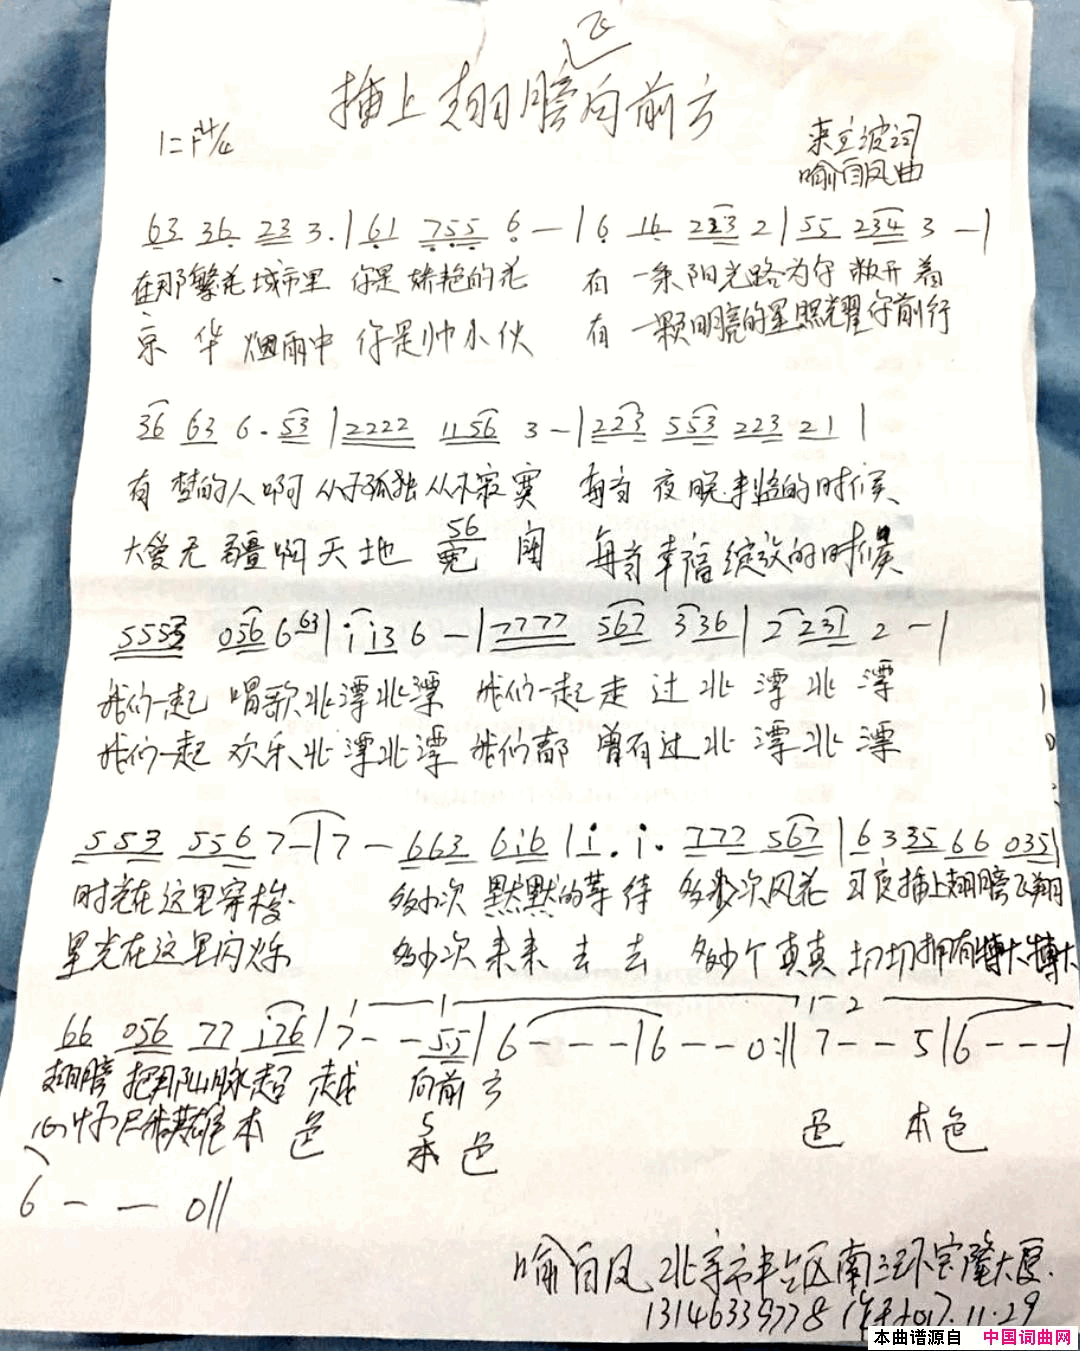 飞
插上翅膀向前方
1=F 4/4
来立波词
喻百凤曲
63 36 23 3.|61 755 6—|6 16 223 2|55 234 3 —|
在那繁花城市里 你是娇艳的花 有一条阳光路为你敞开着
京华烟雨中 你是帅小伙 有一颗明亮的星照耀你前行
36 63 6. 53|2222 1156 3—|223 553 223 21|
有梦的人啊 从不孤独从不寂寞 每当夜晚 的时候
56
大爱无疆啊天地宽阔 每当幸福绽放的时候
5553 056 6 63|i i3 6 —|7777 567 336|2 231 2 —|
我们一起 唱歌北漂北漂 我们一起走过北漂北漂
我们一起 欢乐北漂北漂 我们都曾有过北漂北漂
553 556 7—|7 — 663 6i6|i. i. 777 567|6 335 66 035|
时光在这里穿梭 多少次默默的等待 多少次风花 插上翅膀飞翔
星光在这里闪烁 多少次来来去去 多少个真真切切拥有博大博大
1 1 1 2
66 056 77 i76|7 - - 55|6 - - -|6 - - 0:||7 - - 5|6 - - -|
翅膀 把那山脉超越 向前方
5
心怀 英雄本色 本色 色 本色
6 — — 0||
喻百凤 北京市丰台区南三环宝隆大厦.
13146339778 2017.11.29
本曲谱源自 中国词曲网